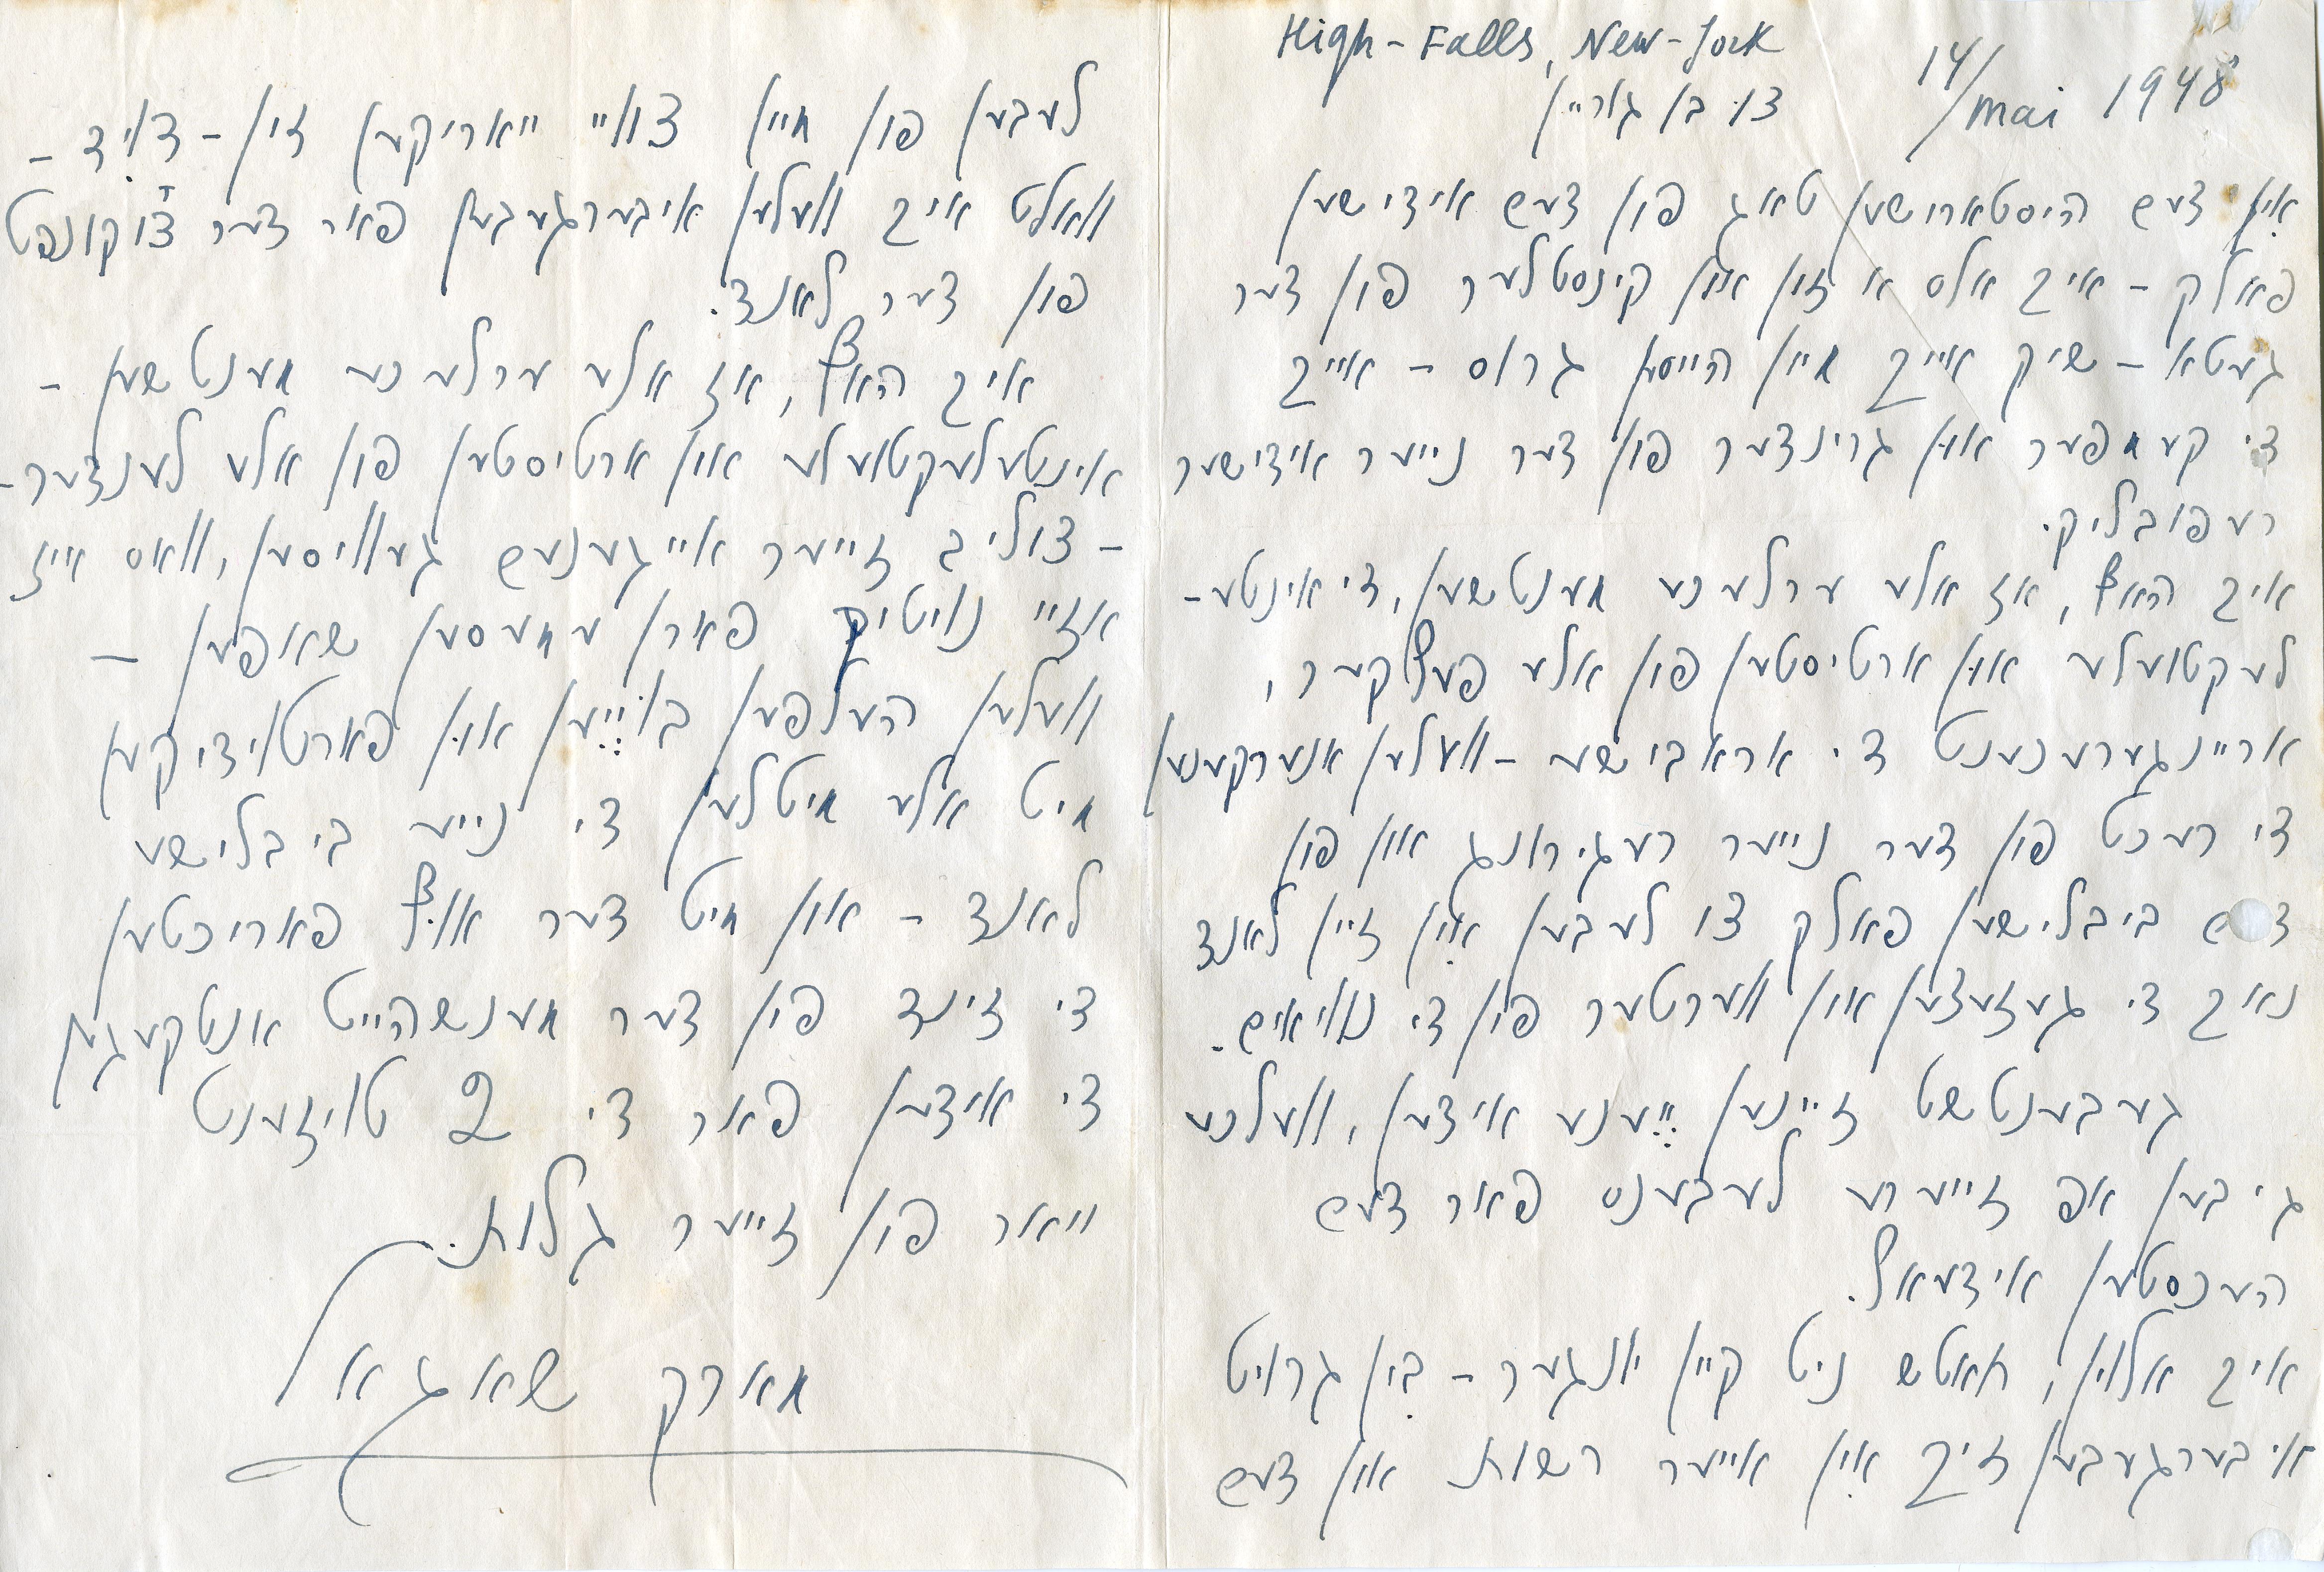 High-Falls, New-York
14/mai 1948
צו בן גוריין
אין דעם היסטארישען טאג פון דעם אידישען
פאלק – איך אלס א זון און קינסטלער פון דער
געטא – שיק אייך מיין הייסען גרוס – אייך
די קעמפער און גרינדער פון דער נייער אידישער
רעפובליק.
איך האף, אז אלע ערלעכע מענטשען, די אינטע-
לעקטועלע און ארטיסטען פון אלע פעלקער,
אריינגערעכענט די אראבישע – וועלען אנערקענען
די רעכט פון דער נייער רעגירונג און פון
דעם ביבלישען פאלק צו לעבען אין זיין לאנד
נאך די געזעצען און ווערטער פון די נוויאים.
געבענטשט זיינען יענע אידען, וועלכע
גיבען אפ זייערע לעבענס פאר דעם
העכסטען אידעאל.
איך אליין, חאטש ניט קיין יונגער – בין גרייט
איבערגעבען זיך אין אייער רשות און דעם
לעבען פון מיין צוויי יאריקען זון – דויד –
וואלט איך וועלען איבערגעבען פאר דער צוקונפט
פון דער לאנד.
איך האף, אז אלע ערלעכע מענטשען –
אינטעלעקטועלע און ארטיסטען פון אלע לענדער –
– צוליב זייער אייגענעם געוויסען, וואס איז
אזיי נויטיק פארן עמעסען שאפען –
וועלען העלפען בויען און פארטיידיקען
מיט אלע מיטלען די נייע ביבלישע
לאנד – און מיט דער אויף פאריכטען
די זינד פון דער מענשהייט אנטקעגען
די אידען פאר די 2 טויזענט
יאר פון זייער גלות.
מארק שאגאל